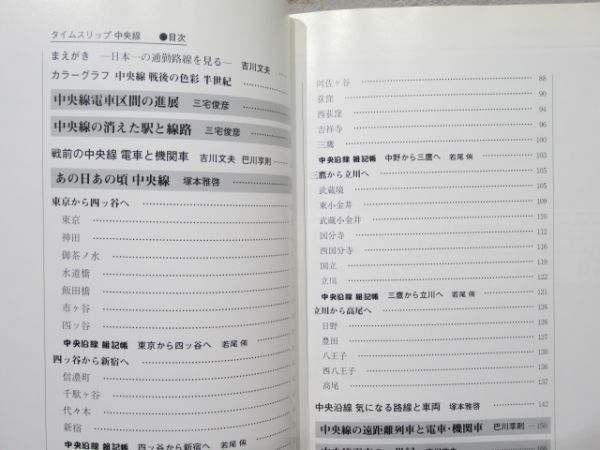 タイムスリップ 中央線 ●目次
まえがき ―日本一の通勤路線を見る― 吉川文夫
カラーグラフ 中央線 戦後の色彩 半世紀
中央線電車区間の進展 三宅俊彦
中央線の消えた駅と線路 三宅俊彦
戦前の中央線 電車と機関車 吉川文夫 巴川享則
あの日あの頃 中央線 塚本雅啓
東京から四ッ谷へ
東京
神田
御茶ノ水
水道橋
飯田橋
市ヶ谷
四ッ谷
中央沿線 雑記帳 東京から四ッ谷へ 若尾 侑
四ッ谷から新宿へ
信濃町
千駄ヶ谷
代々木
新宿
中央沿線 雑記帳 四ッ谷から新宿へ 若尾 侑
阿佐ヶ谷 88
荻窪 90
西荻窪 94
吉祥寺 97
三鷹 100
中央沿線 雑記帳 中野から三鷹へ 若尾 侑 103
三鷹から立川へ 105
武蔵境 105
東小金井 107
武蔵小金井 109
国分寺 112
西国分寺 116
国立 117
立川 121
中央沿線 雑記帳 三鷹から立川へ 若尾 侑 122
立川から高尾へ 126
日野 126
豊田 128
八王子 130
西八王子 136
高尾 137
中央沿線 気になる路線と車両 塚本雅啓 142
中央線の遠距離列車と電車・機関車 巴川享則 150